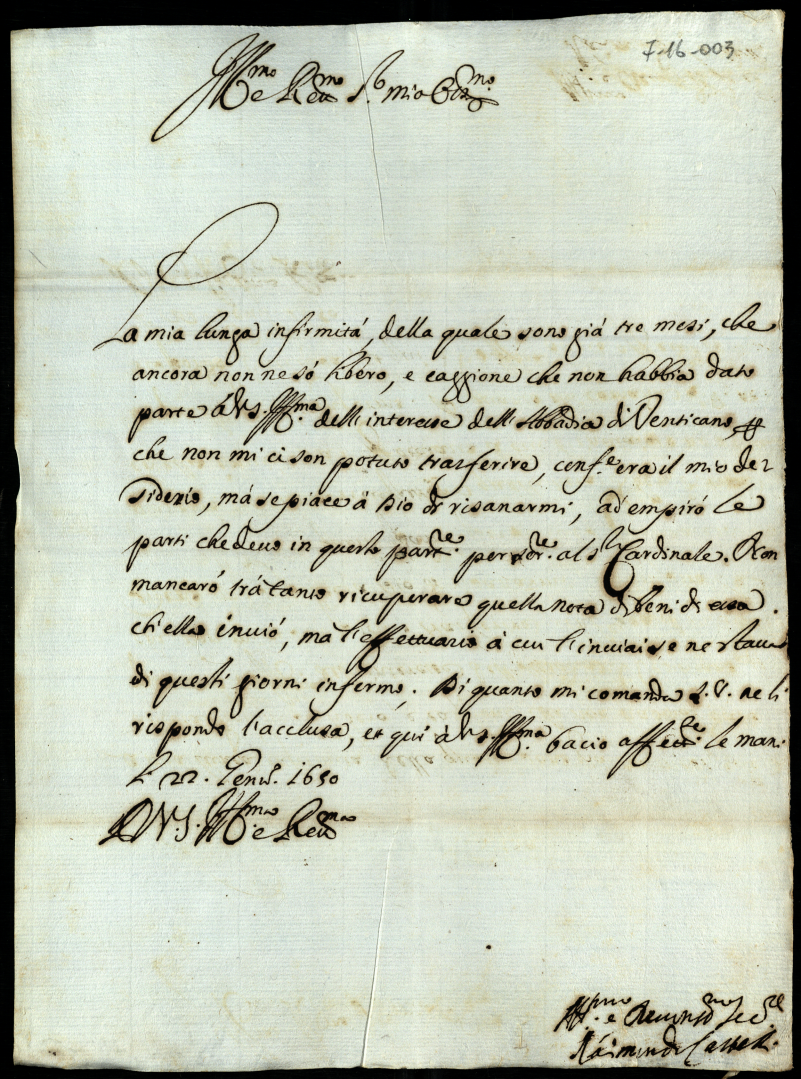 7-16-003
Ill.mo e Rev.mo S.r mio Oss.mo
La mia lunga infirmitá, della quale sono giá tre mesi, che
ancora non ne só libero, e caggione che non habbia dato
parte á V.S. Ill.ma dell'interesse dell'Abbadia di Venticano,
che non mi ci son potuto trasferire, conf.e era il mio de-
siderio, má se piace á Dio di risanarmi, adempiró le
parti che devo in questo part.re per al S.r Cardinale. Non
mancaró trá tanto ricuperare quella nota di beni di casa
ch'ella inuió, ma l'effettuario á cui l'inuiai se ne staua
di questi giorni infermo. Di quanto mi comanda S.V. ne li
rispondo l'acclusa, et qui á V.S. Ill.ma bacio affett.te le mani
li 22. Genn.o 1650
D V.S. Ill.ma e Rev.ma
Aff.mo e
Raimundo